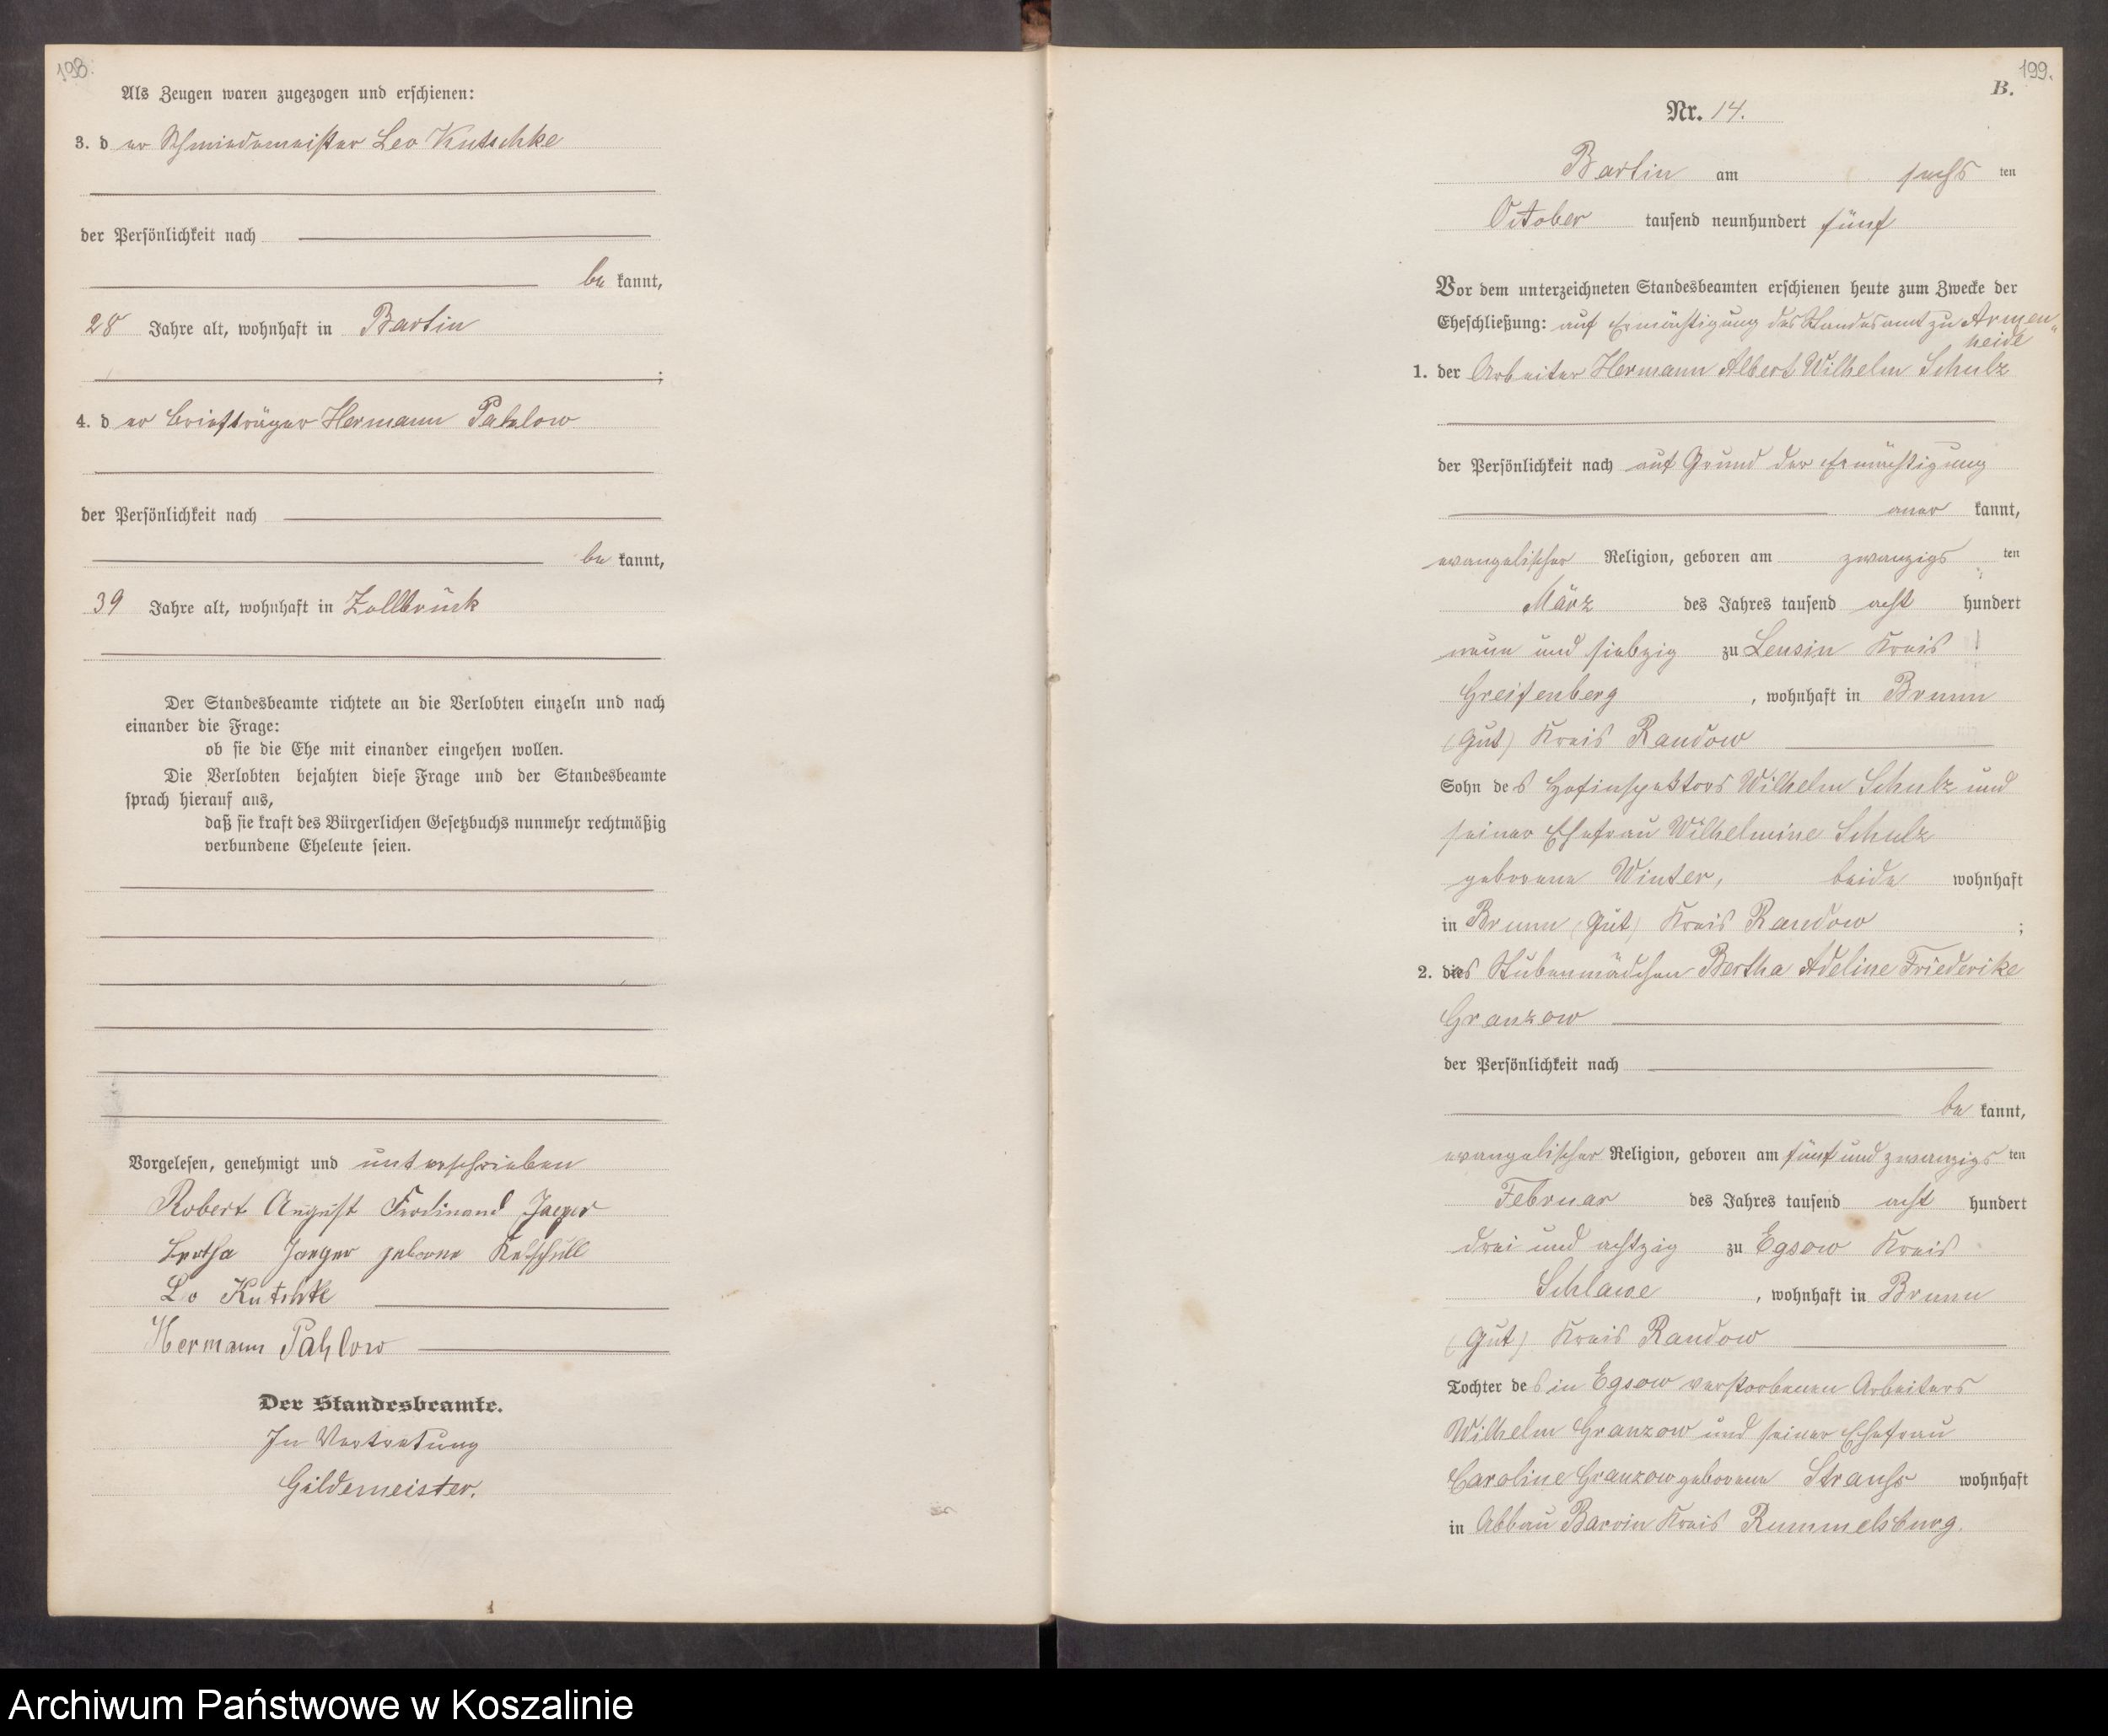 198.
Als Zeugen waren zugezogen und erschienen:
3. d er Schmiedemeister Leo Kutschke
der Persönlichkeit nach
be kannt,
28 Jahre alt, wohnhaft in Bartin
;
4. d er Briefträger Hermann Pahlow
der Persönlichkeit nach
be kannt,
39 Jahre alt, wohnhaft in Zollbrück
Der Standesbeamte richtete an die Verlobten einzeln und nach
einander die Frage:
ob sie die Ehe mit einander eingehen wollen.
Die Verlobten bejahten diese Frage und der Standesbeamte
sprach hierauf aus,
daß sie kraft des Bürgerlichen Gesetzbuchs nunmehr rechtmäßig
verbundene Eheleute seien.
Vorgelesen, genehmigt und unterschrieben
Robert August Ferdinand Jaeger
Bertha Jaeger geborne
Leo Kutschke
Hermann Pahlow
Der Standesbeamte.
In Vertretung
Gildemeister.
199.
B.
Nr. 14.
Bartin am sechs ten
October tausend neunhundert fünf
Vor dem unterzeichneten Standesbeamten erschienen heute zum Zwecke der
Eheschließung: auf Ermächtigung des Standesamt zu Armen„
heide
1. der Arbeiter Hermann Albert Wilhelm Schulz
der Persönlichkeit nach auf Grund der Ermächtigung
aner kannt,
evangelischer Religion, geboren am zwanzigs ten
März des Jahres tausend acht hundert
neun und siebzig zu Lensin Kreis
Greifenberg , wohnhaft in Brunn
(Gut) Kreis Randow
Sohn des Hofinspektors Wilhelm Schulz und
seiner Ehefrau Wilhelmine Schulz
geborene Winter, beide wohnhaft
in Brunn (Gut) Kreis Randow ;
2. das Stubenmädchen Bertha Adeline Friederike
Granzow
der Persönlichkeit nach
be kannt,
evangelischer Religion, geboren am fünf und zwanzigs ten
Februar des Jahres tausend acht hundert
drei und achtzig zu Egsow Kreis
Schlawe , wohnhaft in Brunn
(Gut) Kreis Randow
Tochter des in Egsow verstorbenen Arbeiters
Wilhelm Granzow und seiner Ehefrau
Caroline Granzow geborene Strauhs wohnhaft
in Abbau Barvin Kreis Rummelsburg.
Archiwum Państwowe w Koszalinie